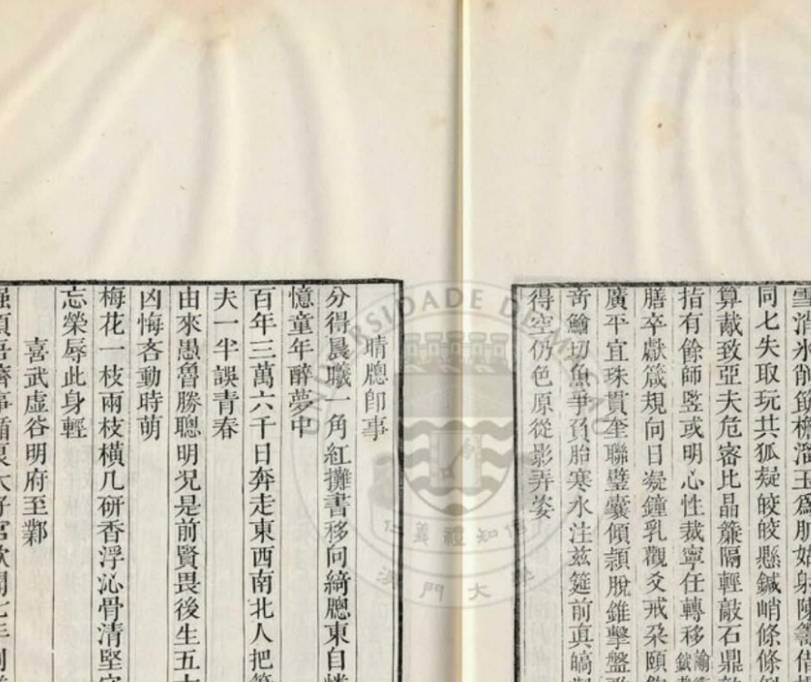 同七失取玩共狐凝皎皎懸鍼峭條條
算戴致亞夫危密比晶簾隔輕敲石鼎
指有餘師竪或明心性裁寧任轉移
膳卒獻箴規向日凝鐘乳觀爻戒朶頤
廣平宜珠貫奎聯璧囊傾頴脫錐擊盤
奇鱠切魚爭負胎寒水注兹筵前眞
得空仍色原從影弄姿
晴牕卽事
分得晨曦一角紅攤書移向綺牕東自
憶童年醉夢中
百年三萬六千日奔走東西南北人把
夫一半誤青春
由來愚魯勝聰明况是前賢畏後生五
凶悔吝動時萌
梅花一枝兩枝橫几研香浮沁骨清堅
忘榮辱此身輕
喜武虛谷明府至鄴
UNIVERSIDADE DE MACAU
仁義禮知信
澳門大學